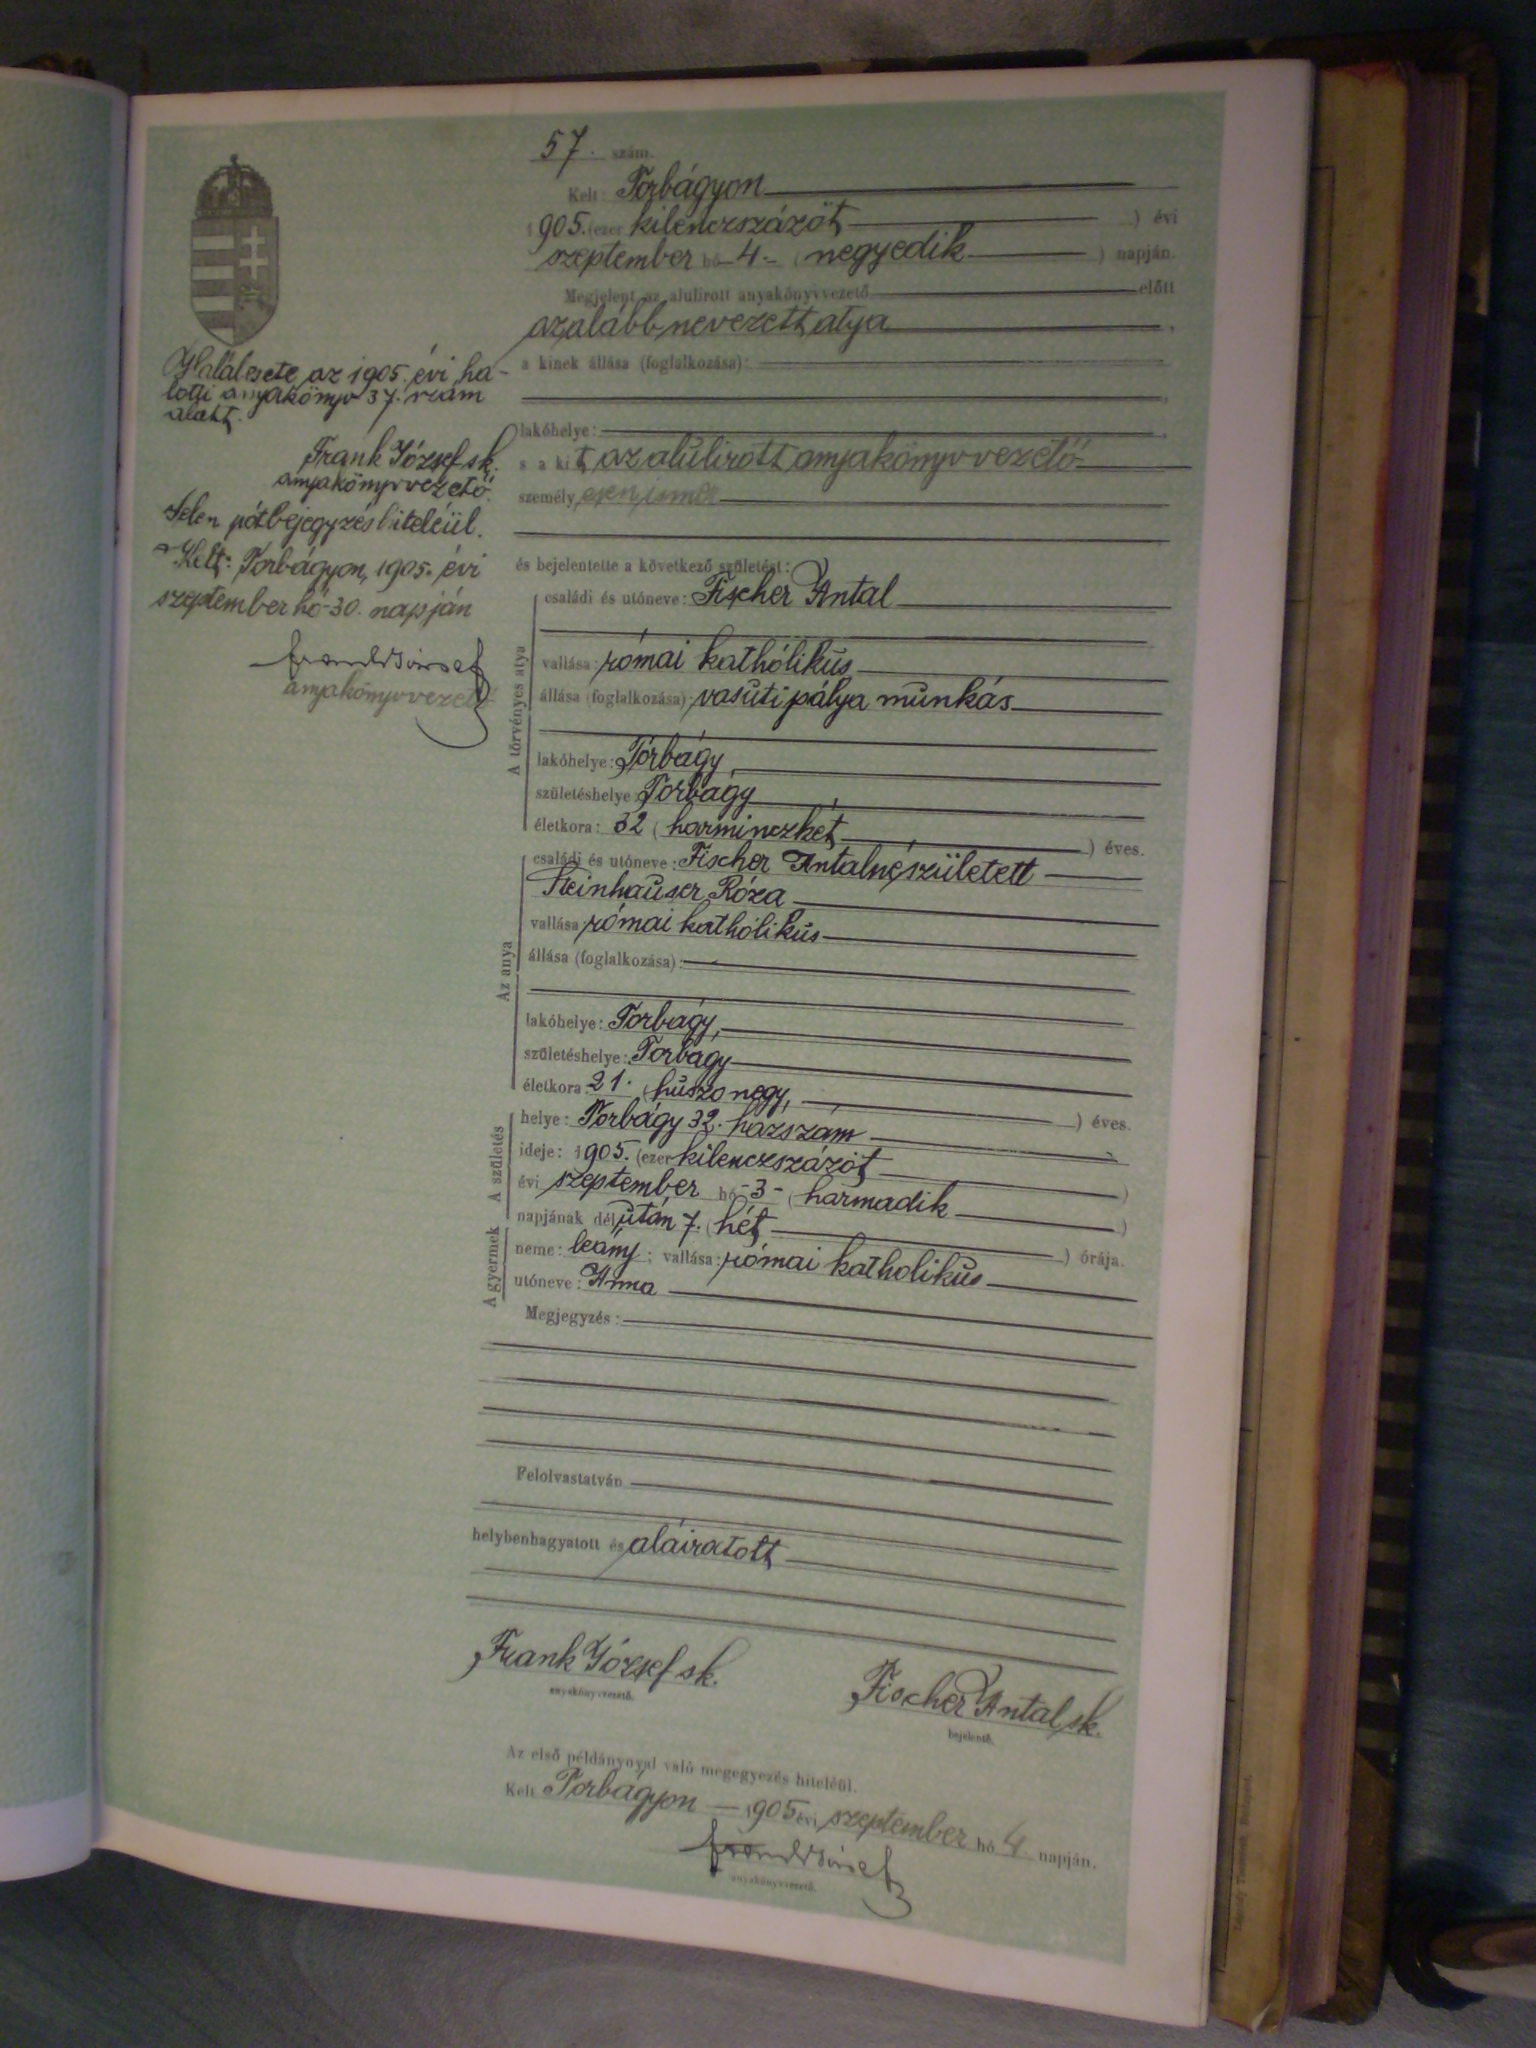 57. szám.
Kelt: Torbágyon
1905. (ezer kilenczszázöt) évi
szeptember hó -4- (negyedik) napján.
Megjelent az alulirott anyakönyvvezető előtt
az alább nevezett atya,
a kinek állása (foglalkozása):
lakóhelye:
s a kit az alulirott anyakönyvvezető
személyesen ismer
és bejelentette a következő születést:
A törvényes atya
családi és utóneve: Fischer Antal
vallása: római kathólikus
állása (foglalkozása): vasuti pálya munkás
lakóhelye: Torbágy
születéshelye: Torbágy
életkora: 32 (harminczkét) éves.
Az anya
családi és utóneve: Fischer Antalné, született
Steinhauser Róza
vallása: római kathólikus
állása (foglalkozása):
lakóhelye: Torbágy,
születéshelye: Torbágy
életkora (huszonegy,) éves.
A születés
helye: Torbágy 32. házszám
ideje: 1905. (ezer kilenczszázöt)
évi szeptember hó -3- (harmadik)
napjának dél után 7. (hét) órája.
A gyermek
neme: leány; vallása: római katholikus
utóneve: Anna
Megjegyzés:
Felolvastatván
helybenhagyatott és aláiratott
Frank József sk.
anyakönyvvezető.
Fischer Antal sk.
bejelentő.
Az első példánynyal való megegyezés hiteléül.
Kelt Torbágyon - 1905 évi szeptember hó 4 napján.
Frank József
anyakönyvvezető.
Halálesete az 1905. évi ha-
lotti anyakönyv 37. szám
alatt.
Frank József sk.
anyakönyvvezető.
Jelen pótbejegyzés hiteléül.
Kelt: Torbágyon, 1905. évi
szeptember hó 30. napján
Frank József
anyakönyvvezető